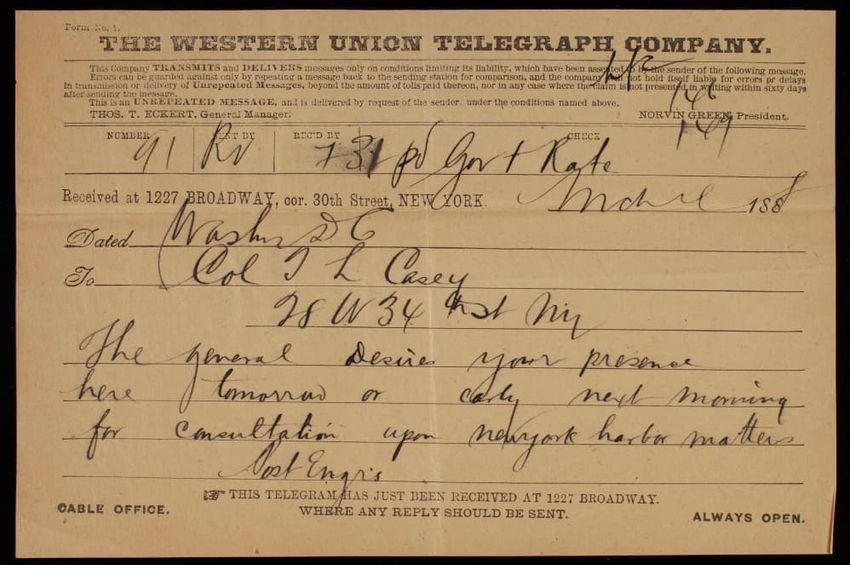 Form No. 1.
THE WESTERN UNION TELEGRAPH COMPANY.
This Company TRANSMITS and DELIVERS messages only on conditions limiting its liability, which have been assented to by the sender of the following message.
Errors can be guarded against only by repeating a message back to the sending station for comparison, and the company will not hold itself liable for errors or delays
in transmission or delivery of Unrepeated Messages, beyond the amount of tolls paid thereon, nor in any case where the claim is not presented in writing within sixty days
after sending the message.
This is an UNREPEATED MESSAGE, and is delivered by request of the sender, under the conditions named above.
THOS. T. ECKERT, General Manager. NORVIN GREEN, President.
146
149
NUMBER SENT BY REC'D BY CHECK
91 Rv 731 pd Govt Rate
Received at 1227 BROADWAY, cor. 30th Street, NEW YORK. 1888
Dated Washn DC
To Col T L Casey
28 W 34 th st Ny
The general desires your presence
here tomorrow or early next morning
for consultation upon newyork harbor matters
Post Engrs
THIS TELEGRAM HAS JUST BEEN RECEIVED AT 1227 BROADWAY.
CABLE OFFICE. WHERE ANY REPLY SHOULD BE SENT. ALWAYS OPEN.